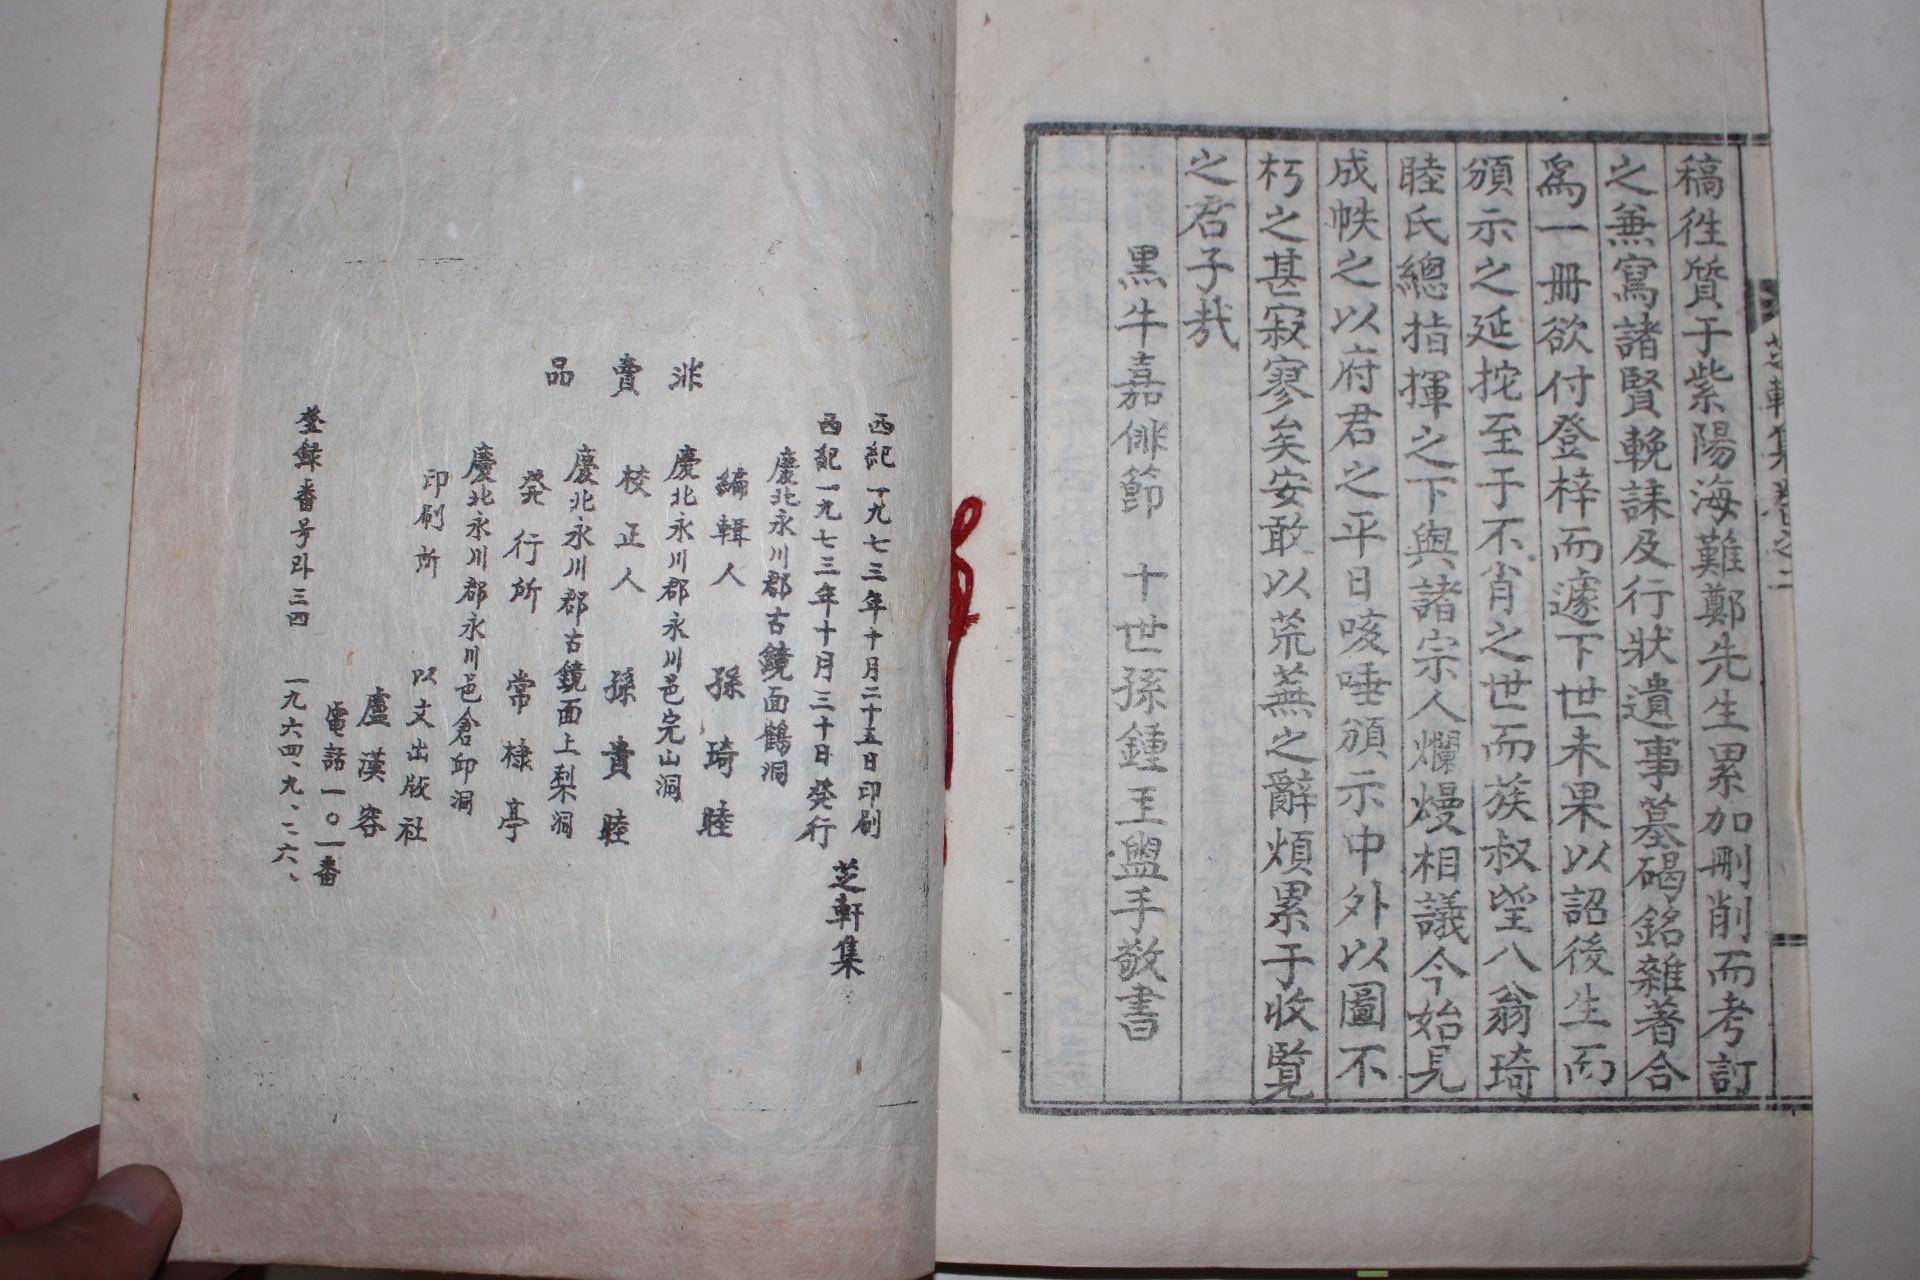 芝軒集卷之二
稿徃質于紫陽海難鄭先生累加刪削而考訂
之兼寫諸賢輓誄及行狀遺事墓碣銘雜著合
爲一冊欲付登梓而遽下世未果以詔後生而
頒示之延拕至于不肖之世而蔟叔瑩八翁琦
睦氏總指揮之下與諸宗人爛熳相議今始見
成帙之以府君之平日咳唾頒示中外以圖不
朽之甚寂寥矣安敢以荒蕪之辭煩累于收覽
之君子㢤
黒牛嘉俳節 十世孫鍾王盥手敬書
芝軒集
西紀一九七三年十月二十五日印刷
西紀一九七三年十月三十日發行
慶北永川郡古鏡面鶴洞
編輯人 孫琦睦
慶北永川郡永川邑完山洞
校正人 孫貴睦
慶北永川郡古鏡面上梨洞
發行所 常棣亭
慶北永川郡永川邑倉邱洞
印刷所 以文出版社
盧漢容
電話一〇一番
登録番号라三四 一九六四、九、二六、
非賣品